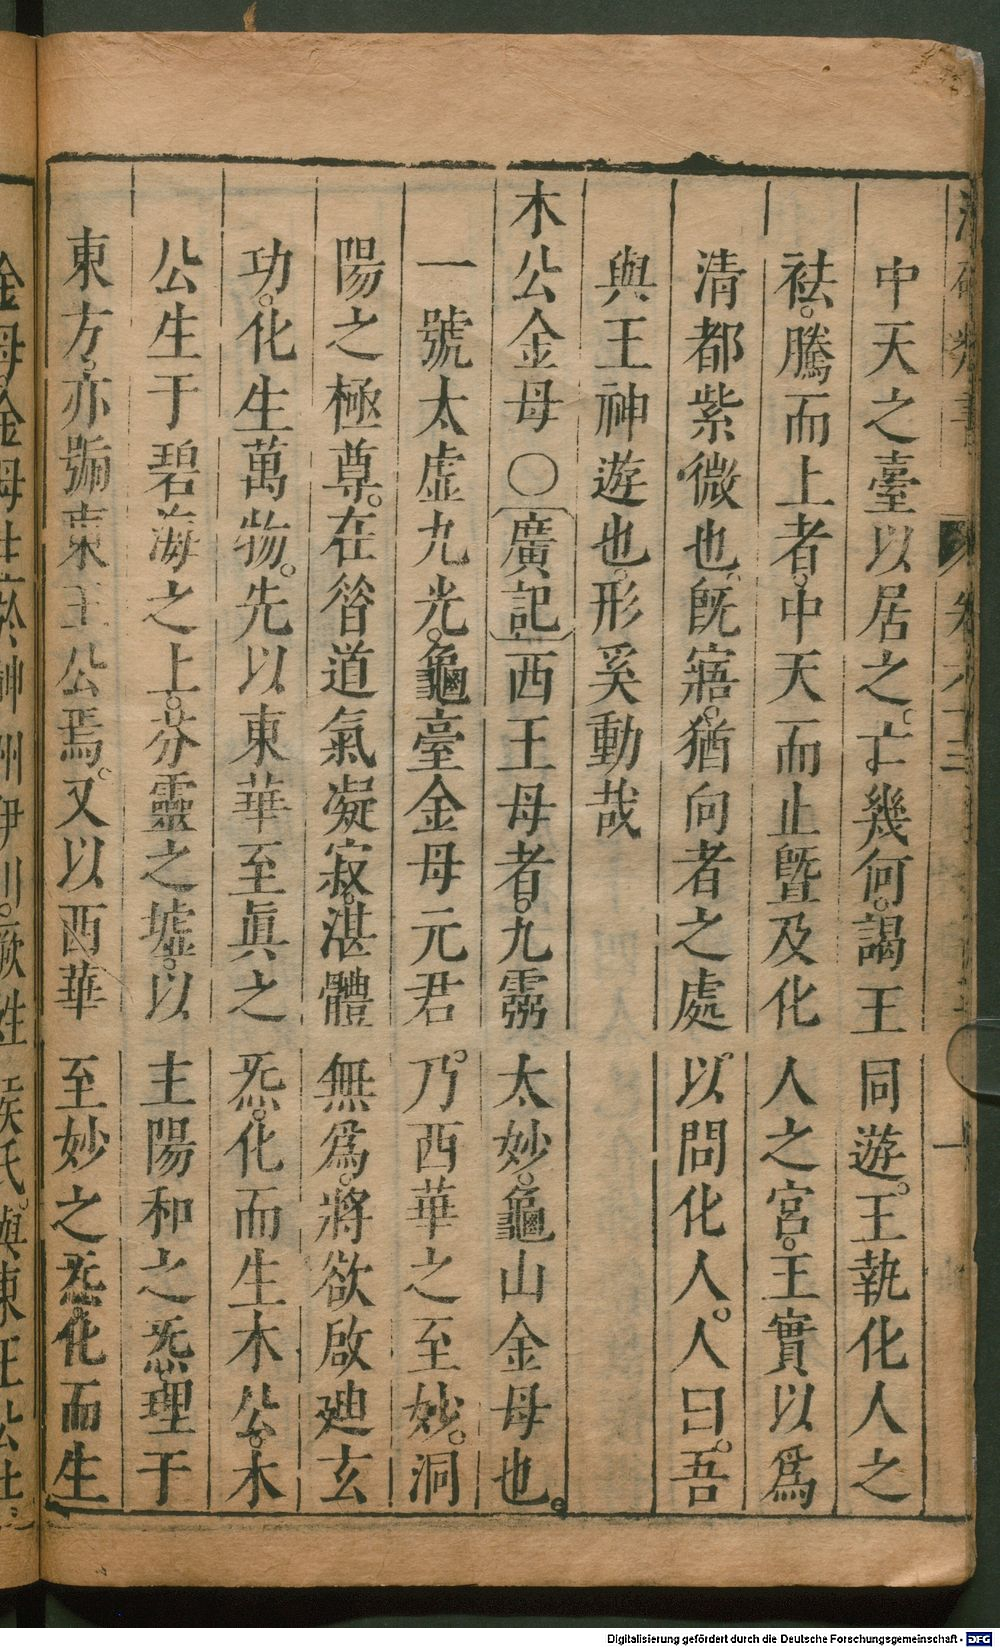 中天之臺以居之。亡幾何。謁王同遊。王執化人之
袪。騰而上者。中天而止曁及化人之宮。王實以爲
清都紫微也。旣寤。猶向者之處。以問化人。人曰。吾
與王神遊也。形奚動哉
木公金母〇廣記西王母者。九靈太妙。龜山金母也
一號太虛九光。龜臺金母元君。乃西華之至妙。洞
陽之極尊。在昝道氣凝寂。湛體無爲。將欲啟廸玄
功。化生萬物。先以東華至眞之炁。化而生木公。木
公生于碧海之上。芬靈之墟。以主陽和之炁。理于
東方。亦號東王公焉。又以西華至妙之炁。化而生
Digitalisierung gefördert durch die Deutsche Forschungsgemeinschaft - DFG